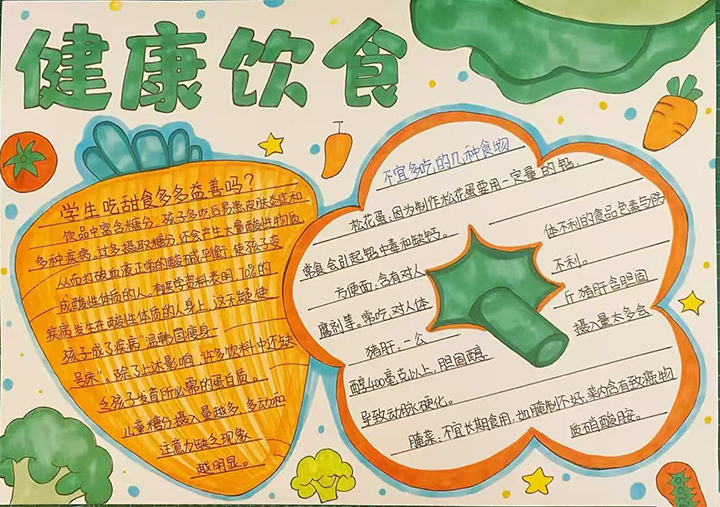 健康饮食
学生吃甜食多多益善吗?
饮品中富含糖分,孩子多吃后易患皮肤炎症和
多种疾病,过多摄取糖分,还会产生大量酸性物质
从而打破血液正常的酸碱平衡,使孩子变
成酸性体质的人。有医学资料表明,70%的
疾病发生在酸性体质的人身上,这不疑使
孩子成了疾病"温畴
号床"。除了上述影响,许多饮料中还缺
乏孩子发育所必需的蛋白质。
儿童糖分摄入量越多,多动和
注意力缺乏现象
越明显。
不宜多吃的几种食物
松花蛋:因为制作松花蛋要用一定量的铅,
常食会引起铅中毒和缺钙。
方便面:含有对人体不利的食品色素与防
腐剂等。常吃,对人体不利。
猪肝:一公斤猪肝含胆固
醇400毫克以上,胆固醇摄入量太多会
导致动脉硬化。
腌菜:不宜长期食用,如腌制不好,菜内含有致癌物
质硝酸胺。